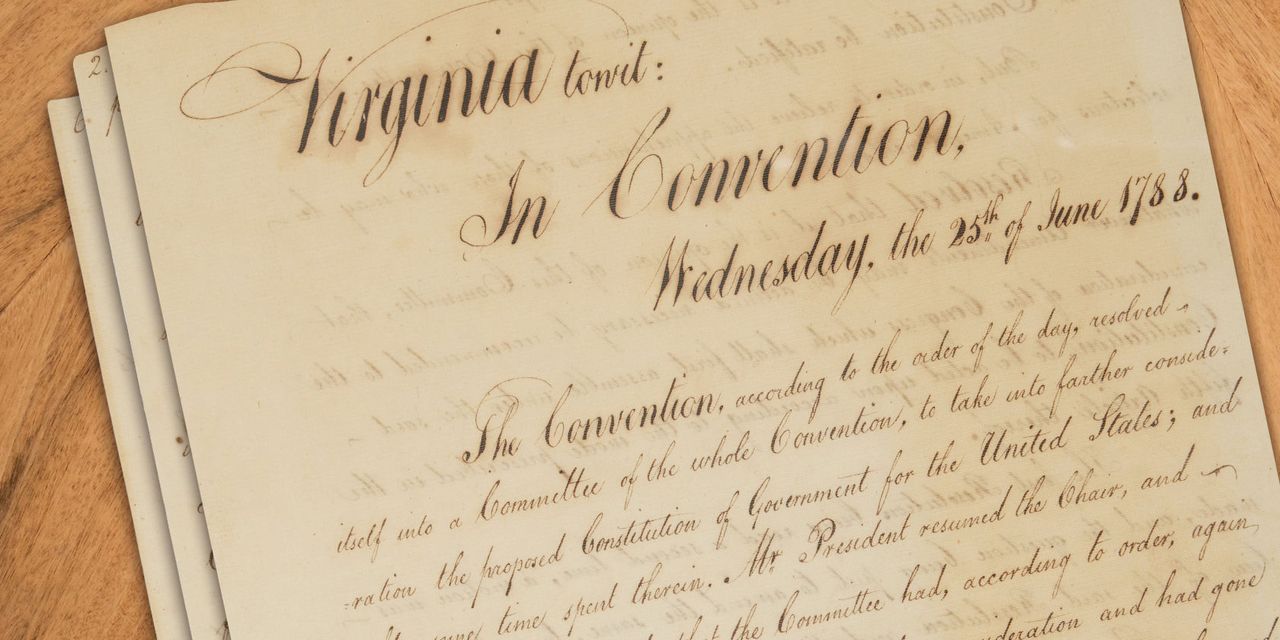 Virginia towit:
In Convention,
Wednesday, the 25th of June 1788.
The Convention, according to the order of the day, resolved
itself into a Committee of the whole Convention, to take into farther conside=
=ration the proposed Constitution of Government for the United States; and
time spent therein. Mr President resumed the Chair, and
that the Committee had, according to order, again
and had gone
2.